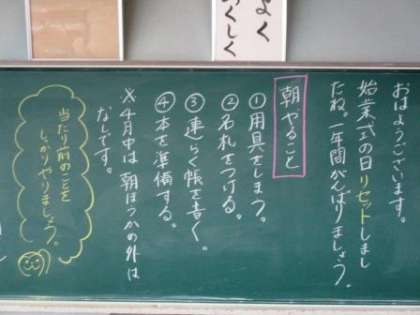 おはようございます。
始業式の日リセットしまし
たね。一年間がんばりましょう。
朝やること
①用具をしまう。
②名札をつける。
③連らく帳を書く。
④本を準備する。
※4月中は朝ほうかの外は
なしです。
当たり前のことを
しっかりやりましょう。
よく
くしく